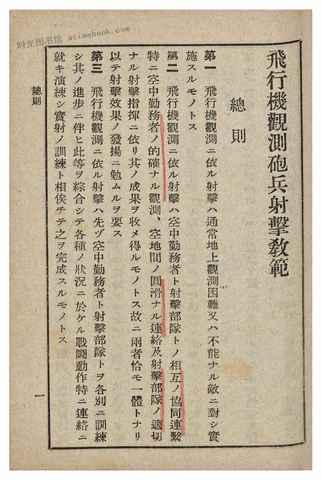 时光图书馆 atimebook.com
飛行機觀測砲兵射擊敎範
總則
第一 飛行機觀測ニ依ル射擊ハ通常地上觀測困難又ハ不能ナル敵ニ對シ實
施スルモノトス
第二 飛行機觀測ニ依ル射擊ハ空中勤務者ト射擊部隊トノ相互ノ協同連繫
特ニ空中勤務者ノ的確ナル觀測、空地間ノ圓滑ナル連絡及射擊部隊ノ適切
ナル射擊指揮ニ依リ其ノ成果ヲ收メ得ルモノトス故ニ兩者恰モ一體トナリ
以テ射擊效果ノ發揚ニ勉ムルヲ要ス
第三 飛行機觀測ニ依ル射擊ハ先ヅ空中勤務者ト射擊部隊トヲ各別ニ訓練
シ其ノ進步ニ伴ヒ此等ヲ綜合シテ各種ノ狀況ニ於ケル戰鬪動作特ニ連絡ニ
就キ演練シ實射ノ訓練ト相俟チテ之ヲ完成スルモノトス
總則
一